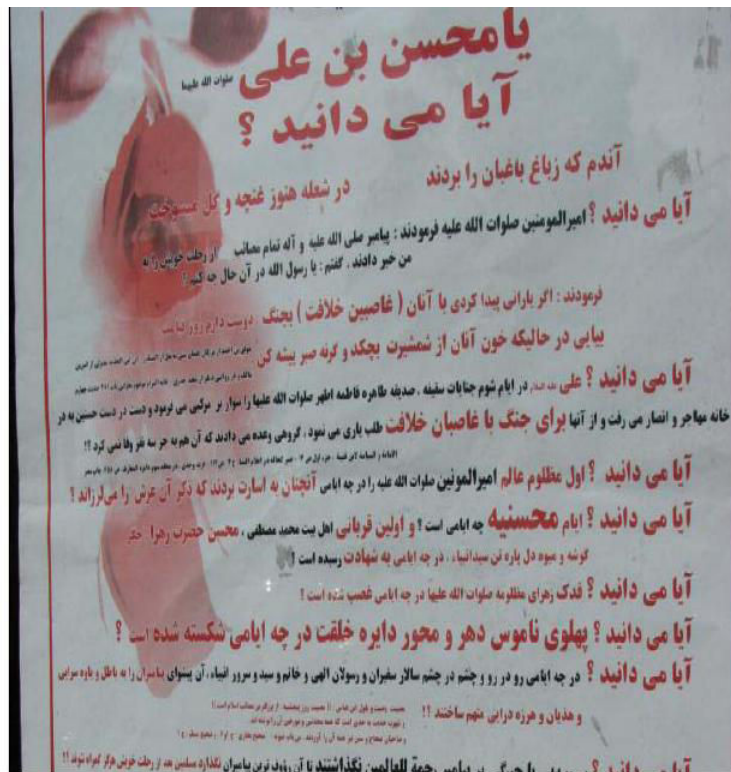 یا محسن بن علی صلوات الله علیهما
آیا می دانید ؟
آندم که زباغ باغبان را بردند در شعله هنوز غنچه و گل میسوخت
آیا می دانید ؟ امیرالمومنین صلوات الله علیه فرمودند : پیامبر صلی الله علیه و آله تمام مصائب از رحلت خویش را به
من خبر دادند . گفتم : یا رسول الله در آن حال چه کنم ؟
فرمودند : اگر یارانی پیدا کردی با آنان ( غاصبین خلافت ) بجنگ . دوست دارم روز قیامت
بیایی در حالیکه خون آنان از شمشیرت بچکد و گرنه صبر پیشه کن
آیا می دانید ؟ علی علیه السلام در ایام شوم جنایات سقیفه . صدیقه طاهره فاطمه اطهر صلوات الله علیها را سوار بر مرکبی می فرمود و دست در دست حسنین به در
خانه مهاجر و انصار می رفت و از آنها برای جنگ با غاصبان خلافت طلب یاری می نمود . گروهی وعده می دادند که آن هم به جز سه نفر وفا نمی کرد ؟!
آیا می دانید ؟ اول مظلوم عالم امیرالمونین صلوات الله علیه را در چه ایامی آنچنان به اسارت بردند که ذکر آن عرش را می لرزاند ؟
آیا می دانید ؟ ایام محسنیه چه ایامی است ؟ و اولین قربانی اهل بیت محمد مصطفی ، محسن حضرت زهرا جگر
گوشه و میوه دل پاره تن سیدانبیاء . در چه ایامی به شهادت رسیده است ؟
آیا می دانید ؟ فدک زهرای مظلومه صلوات الله علیها در چه ایامی غصب شده است ؟
آیا می دانید ؟ پهلوی ناموس دهر و محور دایره خلقت در چه ایامی شکسته شده است ؟
آیا می دانید ؟ در چه ایامی رو در رو و چشم در چشم سالار سفیران و رسولان الهی و خاتم و سید و سرور انبیاء ، آن پیشوای پیامبران را به باطل و یاوه سرایی
و هذیان و هرزه درایی متهم ساختند ؟!
آیا می دانید ؟ پیامبر رحمة للعالمین نگذاشتند تا آن رؤوف ترین پیامبران نگذارد مسلمین بعد از رحلت خویش هرگز گمراه شوند ؟!